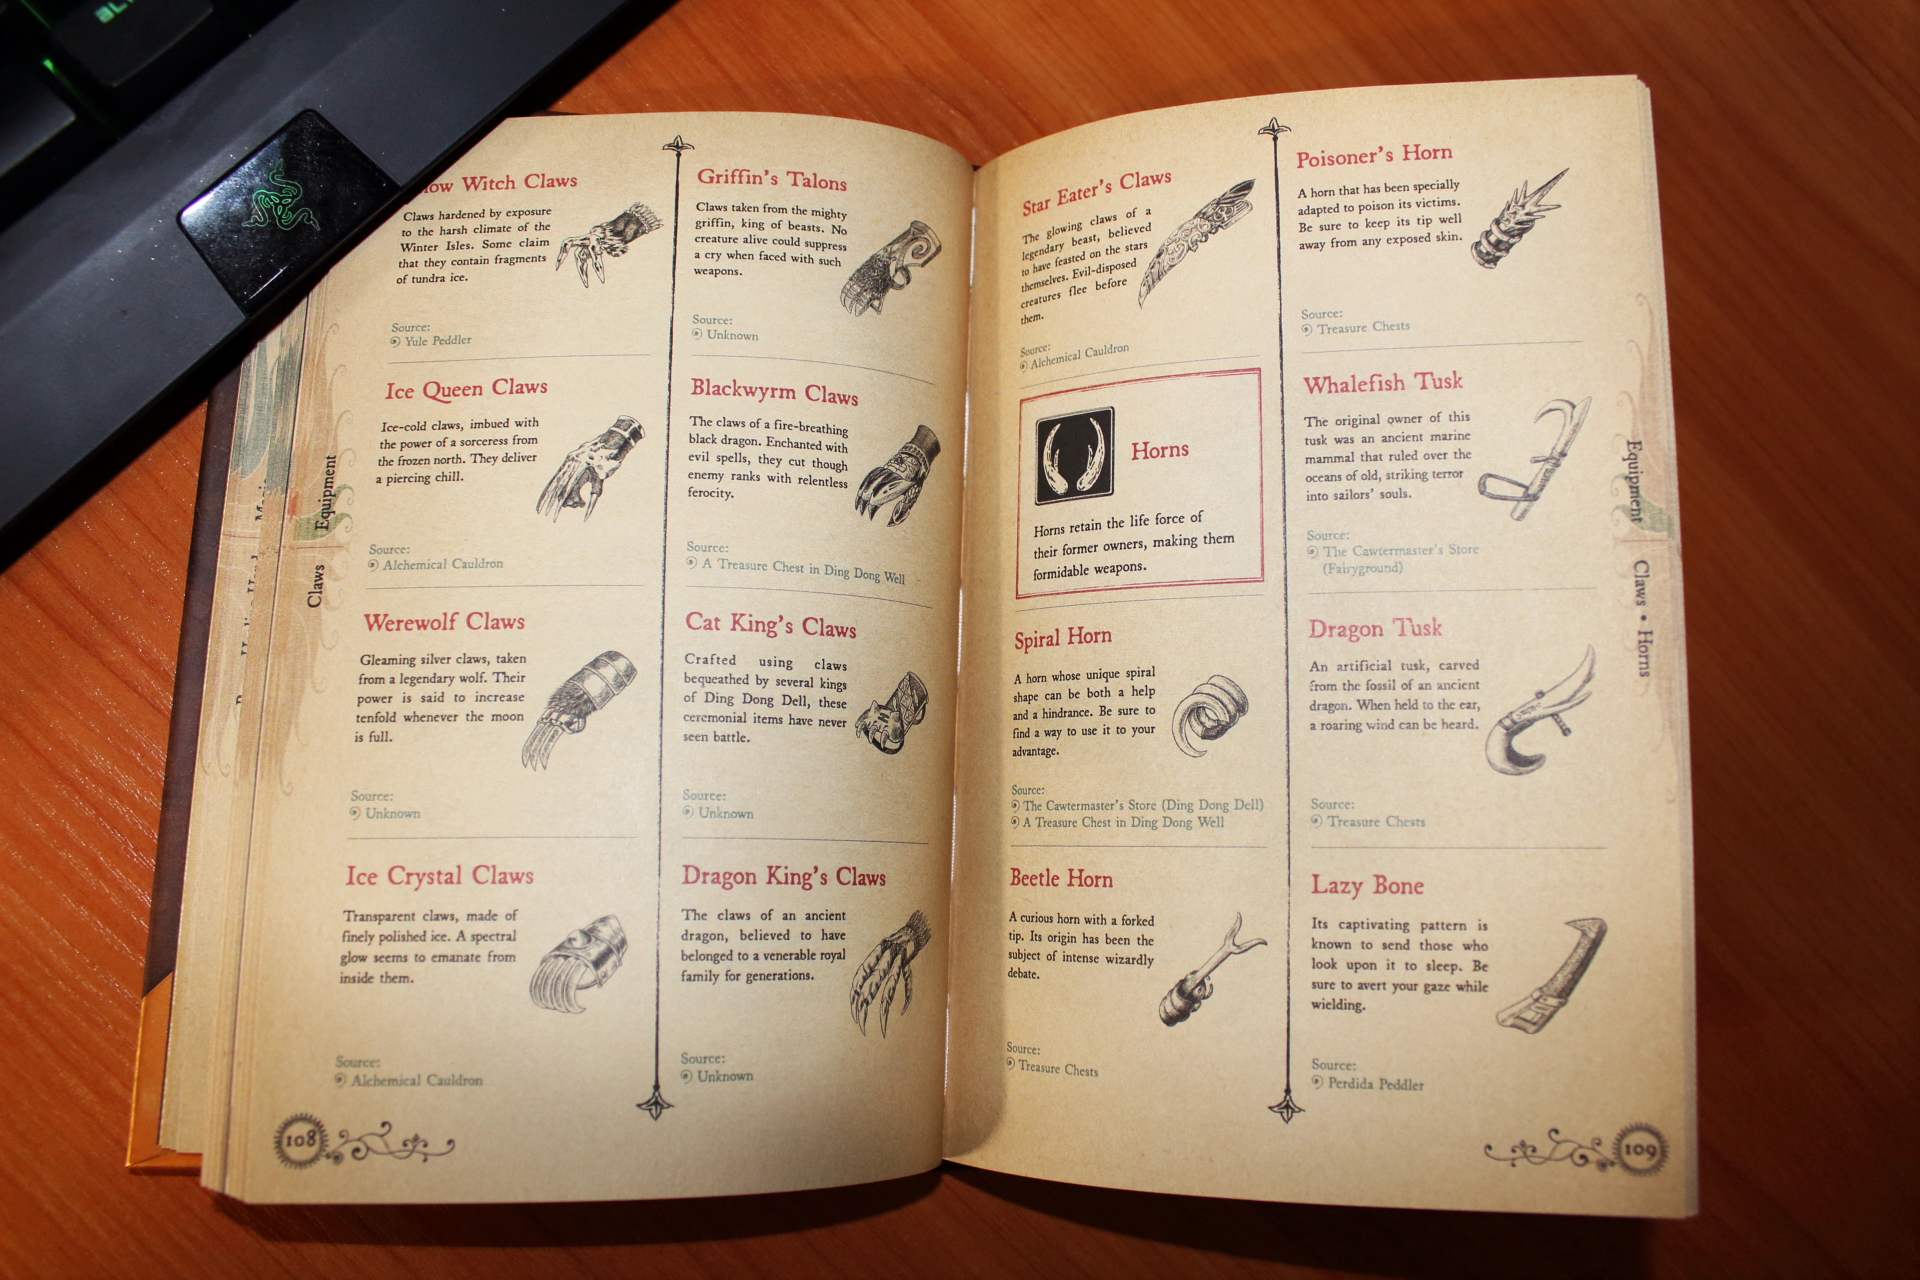 ow Witch Claws
Claws hardened by exposure
to the harsh climate of the
Winter Isles. Some claim
that they contain fragments
of tundra ice.
Source:
Yule Peddler
Ice Queen Claws
Ice-cold claws, imbued with
the power of a sorceress from
the frozen north. They deliver
a piercing chill.
Source:
Alchemical Cauldron
Werewolf Claws
Gleaming silver claws, taken
from a legendary wolf. Their
power is said to increase
tenfold whenever the moon
is full.
Source:
Unknown
Ice Crystal Claws
Transparent claws, made of
finely polished ice. A spectral
glow seems to emanate from
inside them.
Source:
Alchemical Cauldron
Griffin's Talons
Claws taken from the mighty
griffin, king of beasts. No
creature alive could suppress
a cry when faced with such
weapons.
Source:
Unknown
Blackwyrm Claws
The claws of a fire-breathing
black dragon. Enchanted with
evil spells, they cut though
enemy ranks with relentless
ferocity.
Source:
A Treasure Chest in Ding Dong Well
Cat King's Claws
Crafted using claws
bequeathed by several kings
of Ding Dong Dell, these
ceremonial items have never
seen battle.
Source:
Unknown
Dragon King's Claws
The claws of an ancient
dragon, believed to have
belonged to a venerable royal
family for generations.
Source:
Unknown
Claws Equipment
108
Star Eater's Claws
The glowing claws of a
legendary beast, believed
to have feasted on the stars
themselves. Evil-disposed
creatures flee before
them.
Source:
Alchemical Cauldron
Horns
Horns retain the life force of
their former owners, making them
formidable weapons.
Spiral Horn
A horn whose unique spiral
shape can be both a help
and a hindrance. Be sure to
find a way to use it to your
advantage.
Source:
The Cawtermaster's Store (Ding Dong Dell)
A Treasure Chest in Ding Dong Well
Beetle Horn
A curious horn with a forked
tip. Its origin has been the
subject of intense wizardly
debate.
Source:
Treasure Chests
Poisoner's Horn
A horn that has been specially
adapted to poison its victims.
Be sure to keep its tip well
away from any exposed skin.
Source:
Treasure Chests
Whalefish Tusk
The original owner of this
tusk was an ancient marine
mammal that ruled over the
oceans of old, striking terror
into sailors' souls.
Source:
The Cawtermaster's Store
(Fairyground)
Dragon Tusk
An artificial tusk, carved
from the fossil of an ancient
dragon. When held to the ear,
a roaring wind can be heard.
Source:
Treasure Chests
Lazy Bone
Its captivating pattern is
known to send those who
look upon it to sleep. Be
sure to avert your gaze while
wielding.
Source:
Perdida Peddler
Equipment Claws • Horns
109